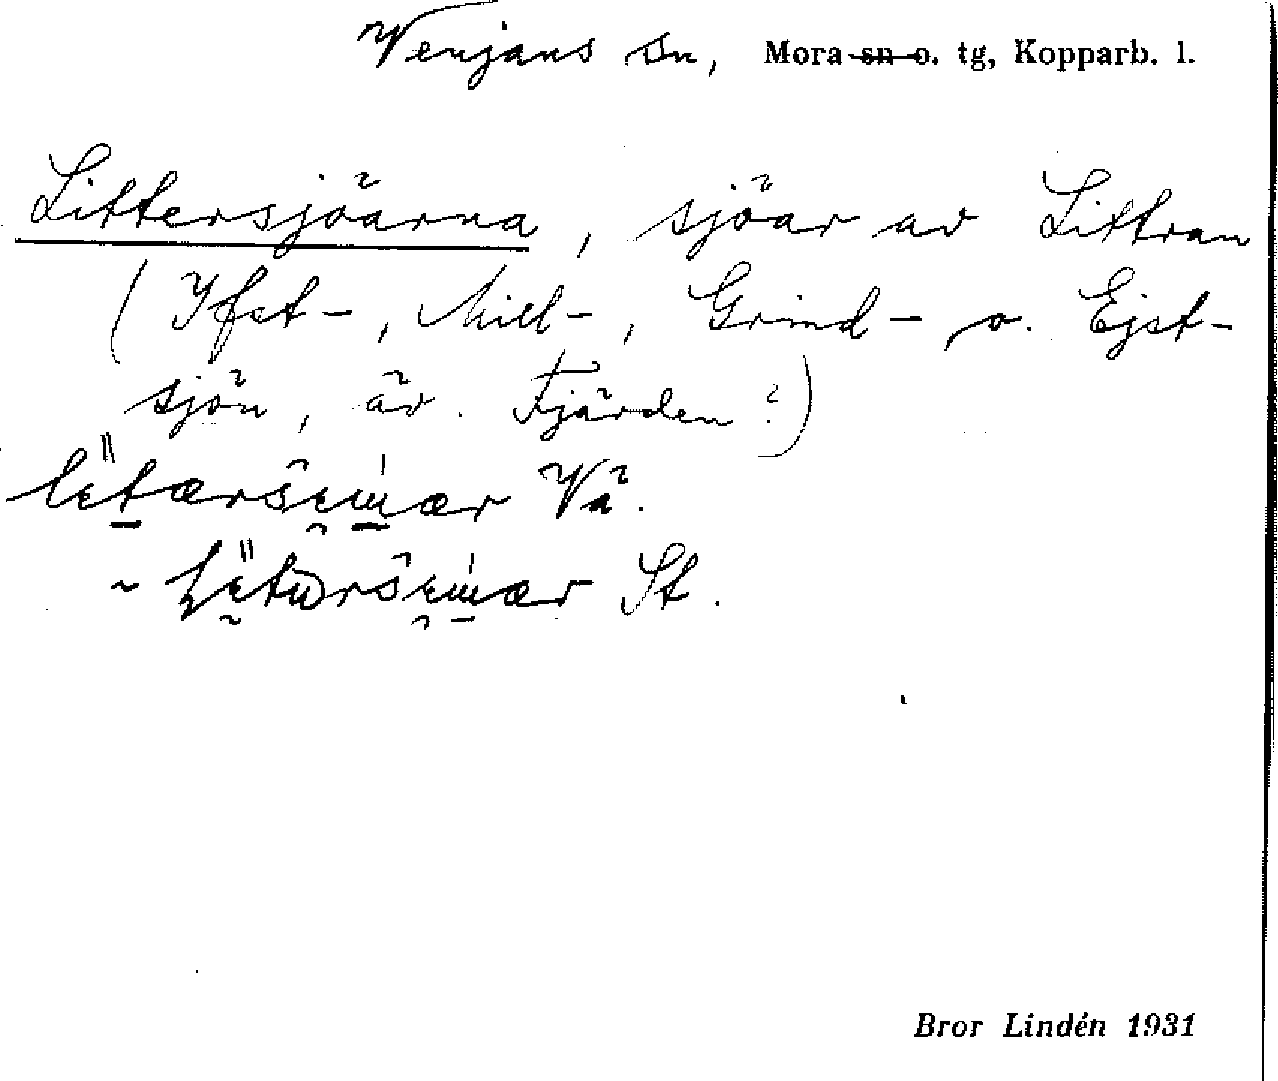 Venjans sn, Mora sn o. tg, Kopparb. l.
Littersjöarna, sjöar av Littran
(Yfst-, Mitt-, Grind- o. Ejst-
sjön, äv. Fjärden?)
Vå.
~ St.
Bror Lindén 1931